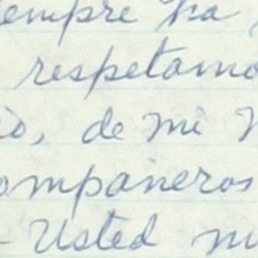 empre ha
respetamo
io, de mi
ompañeros
- Usted